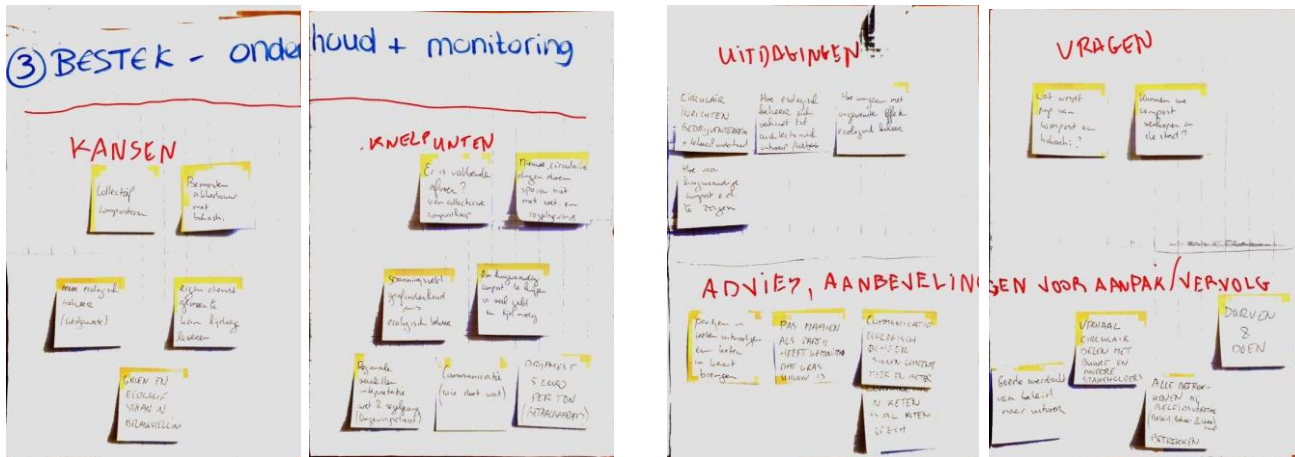 ③ BESTEK - onderhoud + monitoring
KANSEN
Collectief
composteren
Bemesten
akkerbouw
met
bokashi
meer ecologisch
beheer
eigen dienst
gemeente
kan bijdrage
leveren
GROEN EN
ECOLOGIE
STAAN IN
BELANGSTELLING
KNELPUNTEN
Er is voldoende
afvoer?
van collectieve
composthoop
Nieuwe, circulaire
dingen doen
sporen niet
met wet- en
regelgeving
spanningsveld
ecologisch beheer
Om hoogwaardig
compost te krijgen
is veel geld
en tijd nodig
Regionale
verschillen
interpretatie
wet & regelgeving
Communicatie
(wie doet wat)
5 EURO
PER TON
UITDAGINGEN
CIRCULAIR
INRICHTEN
BEDRIJVENTERREIN
Hoe ecologisch
beheer zich
verhoudt tot
ontwerp
Hoe omgaan met
ongewenste effecten
ecologisch beheer
Hoe voor
hoogwaardige
compost e.d.
te zorgen
VRAGEN
Wat wordt
prijs van
compost en
bokashi?
Kunnen we
compost
verkopen in
de stad?
ADVIES, AANBEVELINGEN VOOR AANPAK/VERVOLG
partijen in
keten uitnodigen
en keten
in kaart
brengen
PAS MAAIEN
ALS
HEEFT
DAT GRAS
SCHOON IS
COMMUNICATIE
ECOLOGISCH
BEHEER
BINNEN GEMEENTE
N KETEN
LATEN
ZIEN
Goede overdracht
van beleid
naar uitvoer
VERHAAL
CIRCULAIR
DELEN MET
BUURT EN
ANDERE
STAKEHOLDERS
ALLE BETROK-
KENEN BIJ
BETREKKEN
DURVEN
&
DOEN